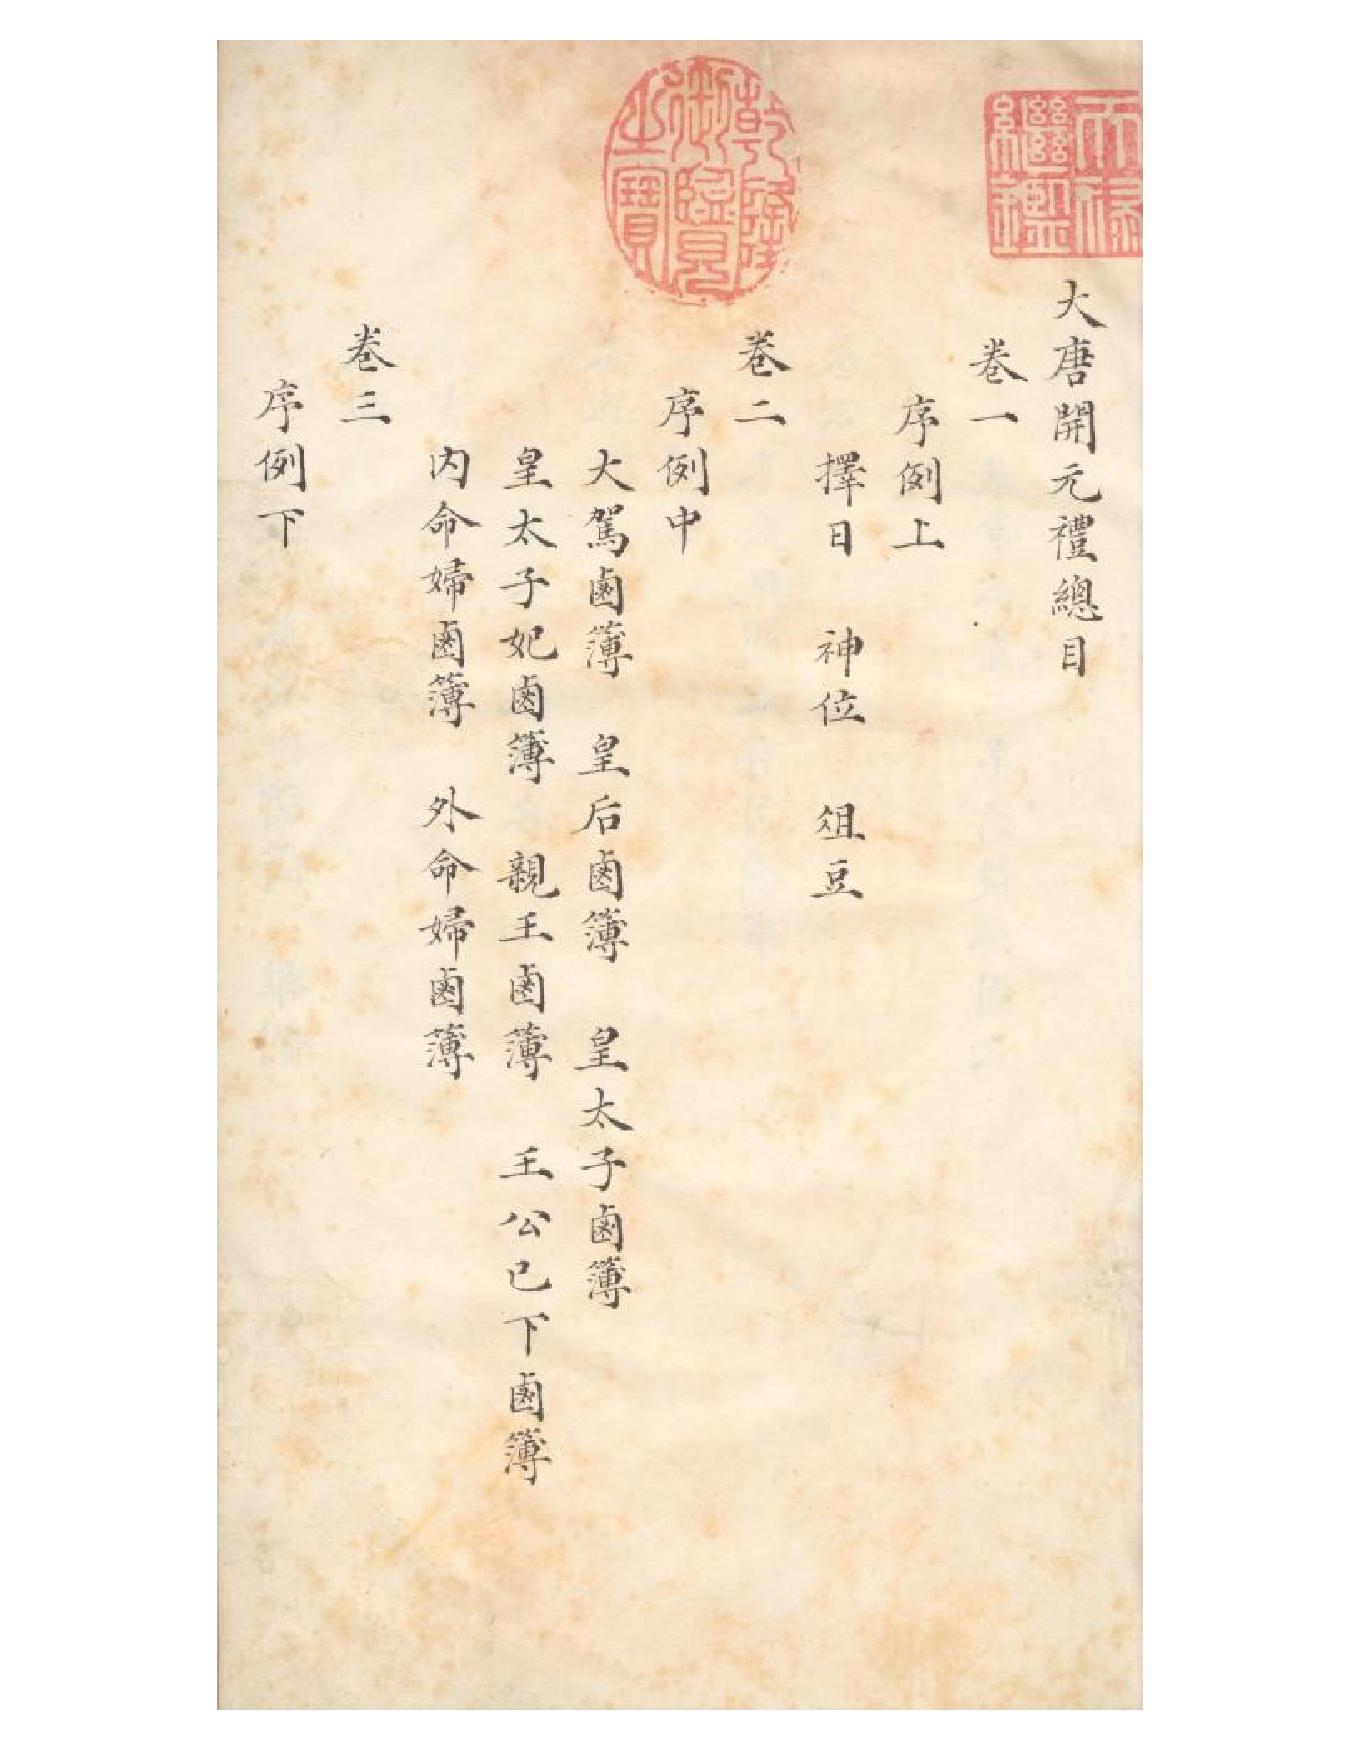 大唐開元禮總目
卷一
序例上
擇日　神位　俎豆
卷二
序例中
大駕鹵簿　皇后鹵簿　皇太子鹵簿
皇太子妃鹵簿　親王鹵簿　王公已下鹵簿
内命婦鹵簿　外命婦鹵簿
卷三
序例下
天祿繼鑑
乾隆御覽之寶